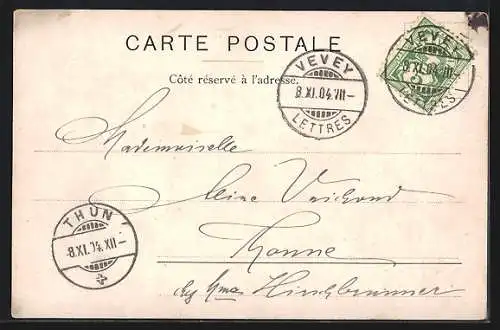 CARTE POSTALE
Côté réservé à l'adresse.
VEVEY
8.XI.04.VII-
LETTRES
VEVEY
8.XI.04.VII-
LETTRES
Mademoiselle
Thoune
Hirschbrunner
THUN
-8.XI.04.XII-